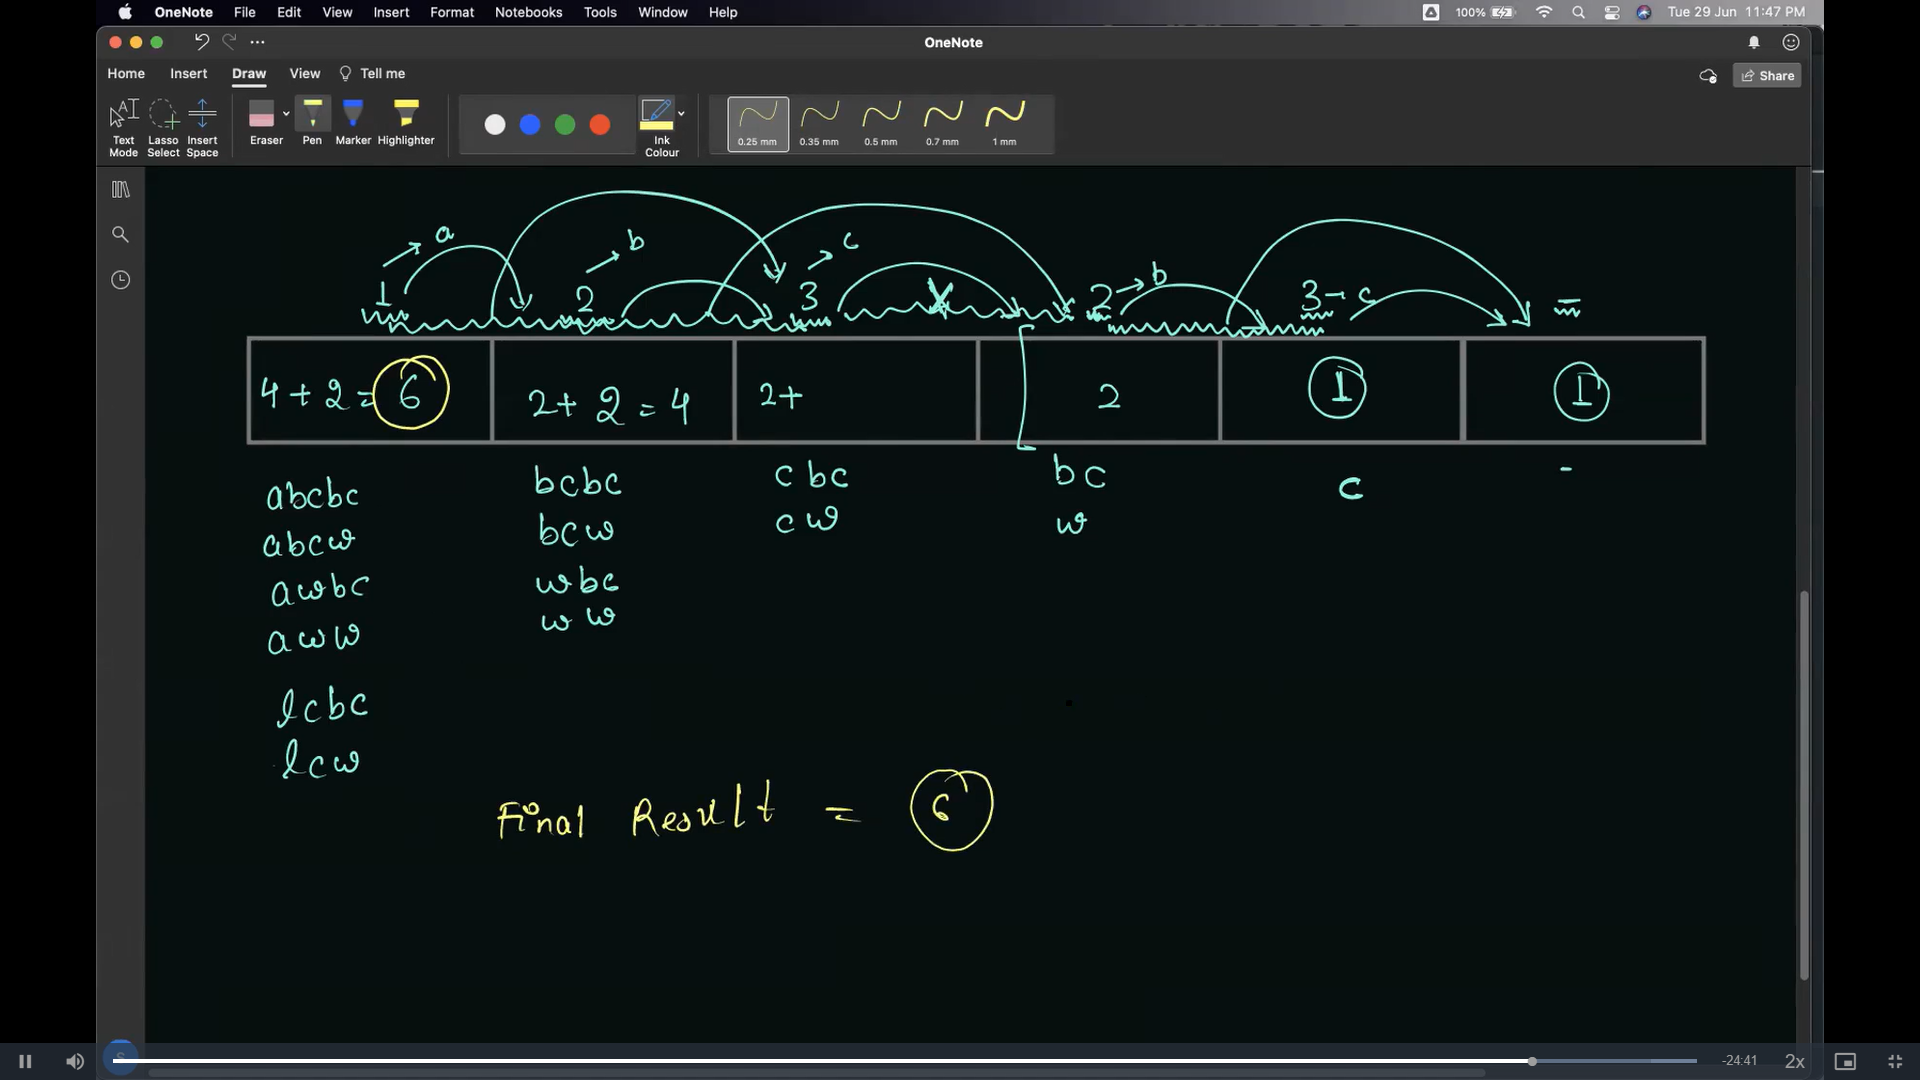 OneNote File Edit View Insert Format Notebooks Tools Window Help 100% Tue 29 Jun 11:47 PM
OneNote
Home Insert Draw View Tell me Share
Text Mode Lasso Select Insert Space Eraser Pen Marker Highlighter Ink Colour 0.25 mm 0.35 mm 0.5 mm 0.7 mm 1 mm
a b c
1 2 3 x 2 → b 3 → c -
4 + 2 = 6 2 + 2 = 4 2 + 2 1 1
abcbc bcbc cbc bc c -
abcw bcw cw w
awbc wbc
aww ww
lcbc
lcw
Final Result = 6
S -24:41 2x